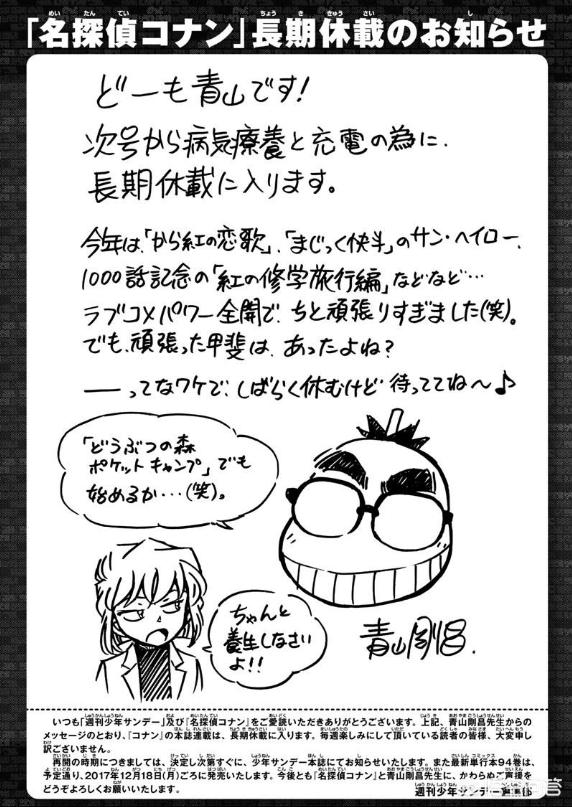 「名探偵コナン」長期休載のお知らせ
どーも青山です!
次号から病気療養と充電の為に、
長期休載に入ります。
今年は、「から紅の恋歌」、「まじっく快斗」のサン・ヘイロー、
1000話記念の「紅の修学旅行編」などなど…
ラブコメパワー全開で、ちと頑張りすぎました(笑)。
でも、頑張った甲斐は、あったよね?
――ってなワケで、しばらく休むけど 待っててね〜♪
「どうぶつの森
ポケットキャンプ」でも
始めるか…(笑)。
ちゃんと
養生しなさい
よ!!
青山剛昌.
いつも「週刊少年サンデー」及び「名探偵コナン」をご愛読いただきありがとうございます。上記、青山剛昌先生からの
メッセージのとおり、「コナン」の本誌連載は、長期休載に入ります。毎週楽しみにして頂いている読者の皆様、大変申し
訳ございません。
再開の時期につきましては、決定し次第すぐに、少年サンデー本誌にてお知らせいたします。また最新単行本94巻は、
予定通り、2017年12月18日(月)ごろに発売いたします。今後とも「名探偵コナン」と青山剛昌先生に、かわらぬご声援を
どうぞよろしくお願いいたします。
週刊少年サンデー編集部